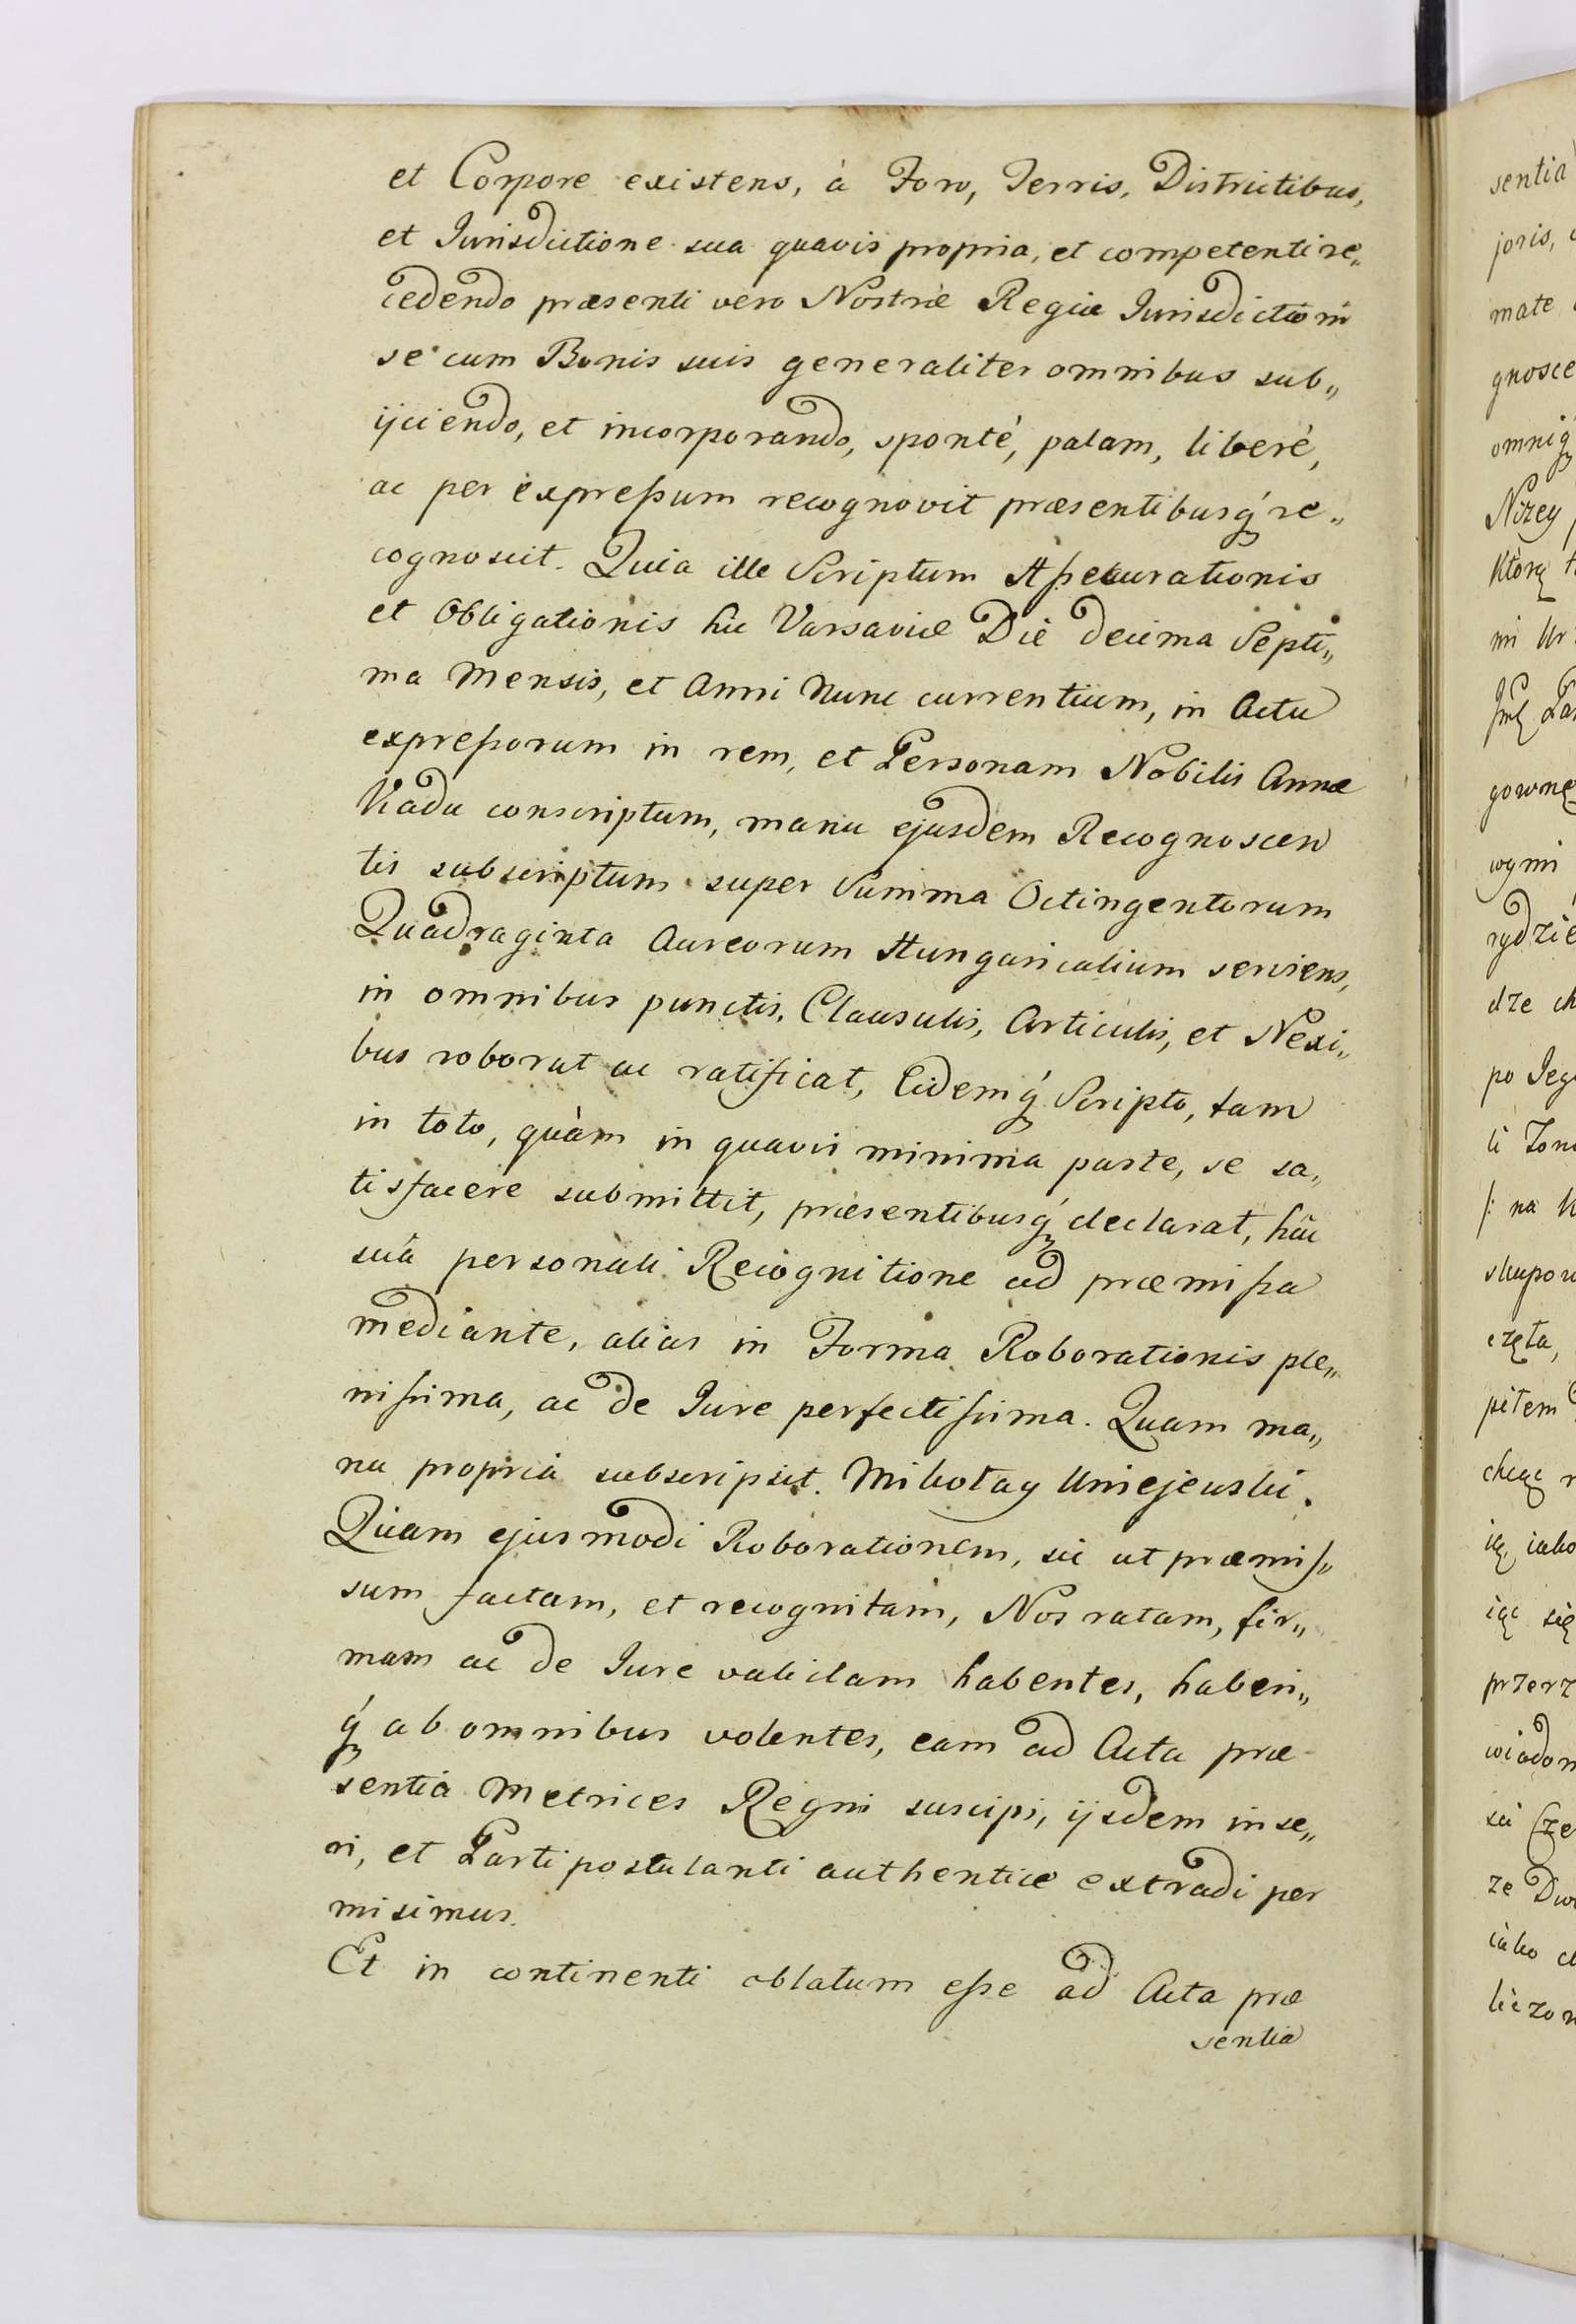 et Corpore existens, à Foro, Terris, Districtibus,
et Jurisdictione sua quavis propria, et competenti re„
cedendo præsenti vero Nostræ Regiæ Jurisdictioni
se cum Bonis suis generaliter omnibus sub„
ijciendo, et incorporando, sponté, palam, liberè,
ac per expreſsum recognovit præsentibusq́ re„
cognoscit. Quia ille Scriptum Aſsecurationis
et Obligationis hic Varsaviæ Die decima Septi„
ma Mensis, et Anni Nunc currentium, in Actu
expreſsorum in rem, et Personam Nobilis Annæ
Kadu conscriptum, manu ejusdem Recognoscen
tis subscriptum super Summa Octingentorum
Quadraginta Aureorum Hungaricalium serviens,
in omnibus punctis, Clausulis, Articulis, et Nexi„
bus roborat ac ratificat, Eidemq́ Scripto, tam
in toto, quàm in quavis minima parte, se sa„
tisfacere submittit, præsentibusq́ declarat, hâc
suâ personali Recognitione ad præmiſsa
mediante, alias in Forma Roborationis ple„
niſsima, ac de Jure perfectiſsima. Quam ma„
nu propriâ subscripsit. Mikołay Uniejewski.
Quam ejusmodi Roborationem, sic ut præmiſ„
sum factam, et recognitam, Nos ratam, fir„
mam ac de Jure validam habentes, haberi„
q́ ab omnibus volentes, eam ad Acta præ
sentia Metrices Regni suscipi, ijsdem inse„
ri, et Parti postulanti authentice extradi per
misimus.
Et in continenti oblatum eſse ad Acta præ
sentia
sentia
joris,
mate
gnosce
omniq́
Nizey
Którą
mi Ur
gowne
wymi
rydzie
dze ch
po Jeg
li Zon
/: na K
skupow
częta,
pitem
chcąc
ię, iako
iąc się
przerz
wiadom
ze Dwo
iako
liczon